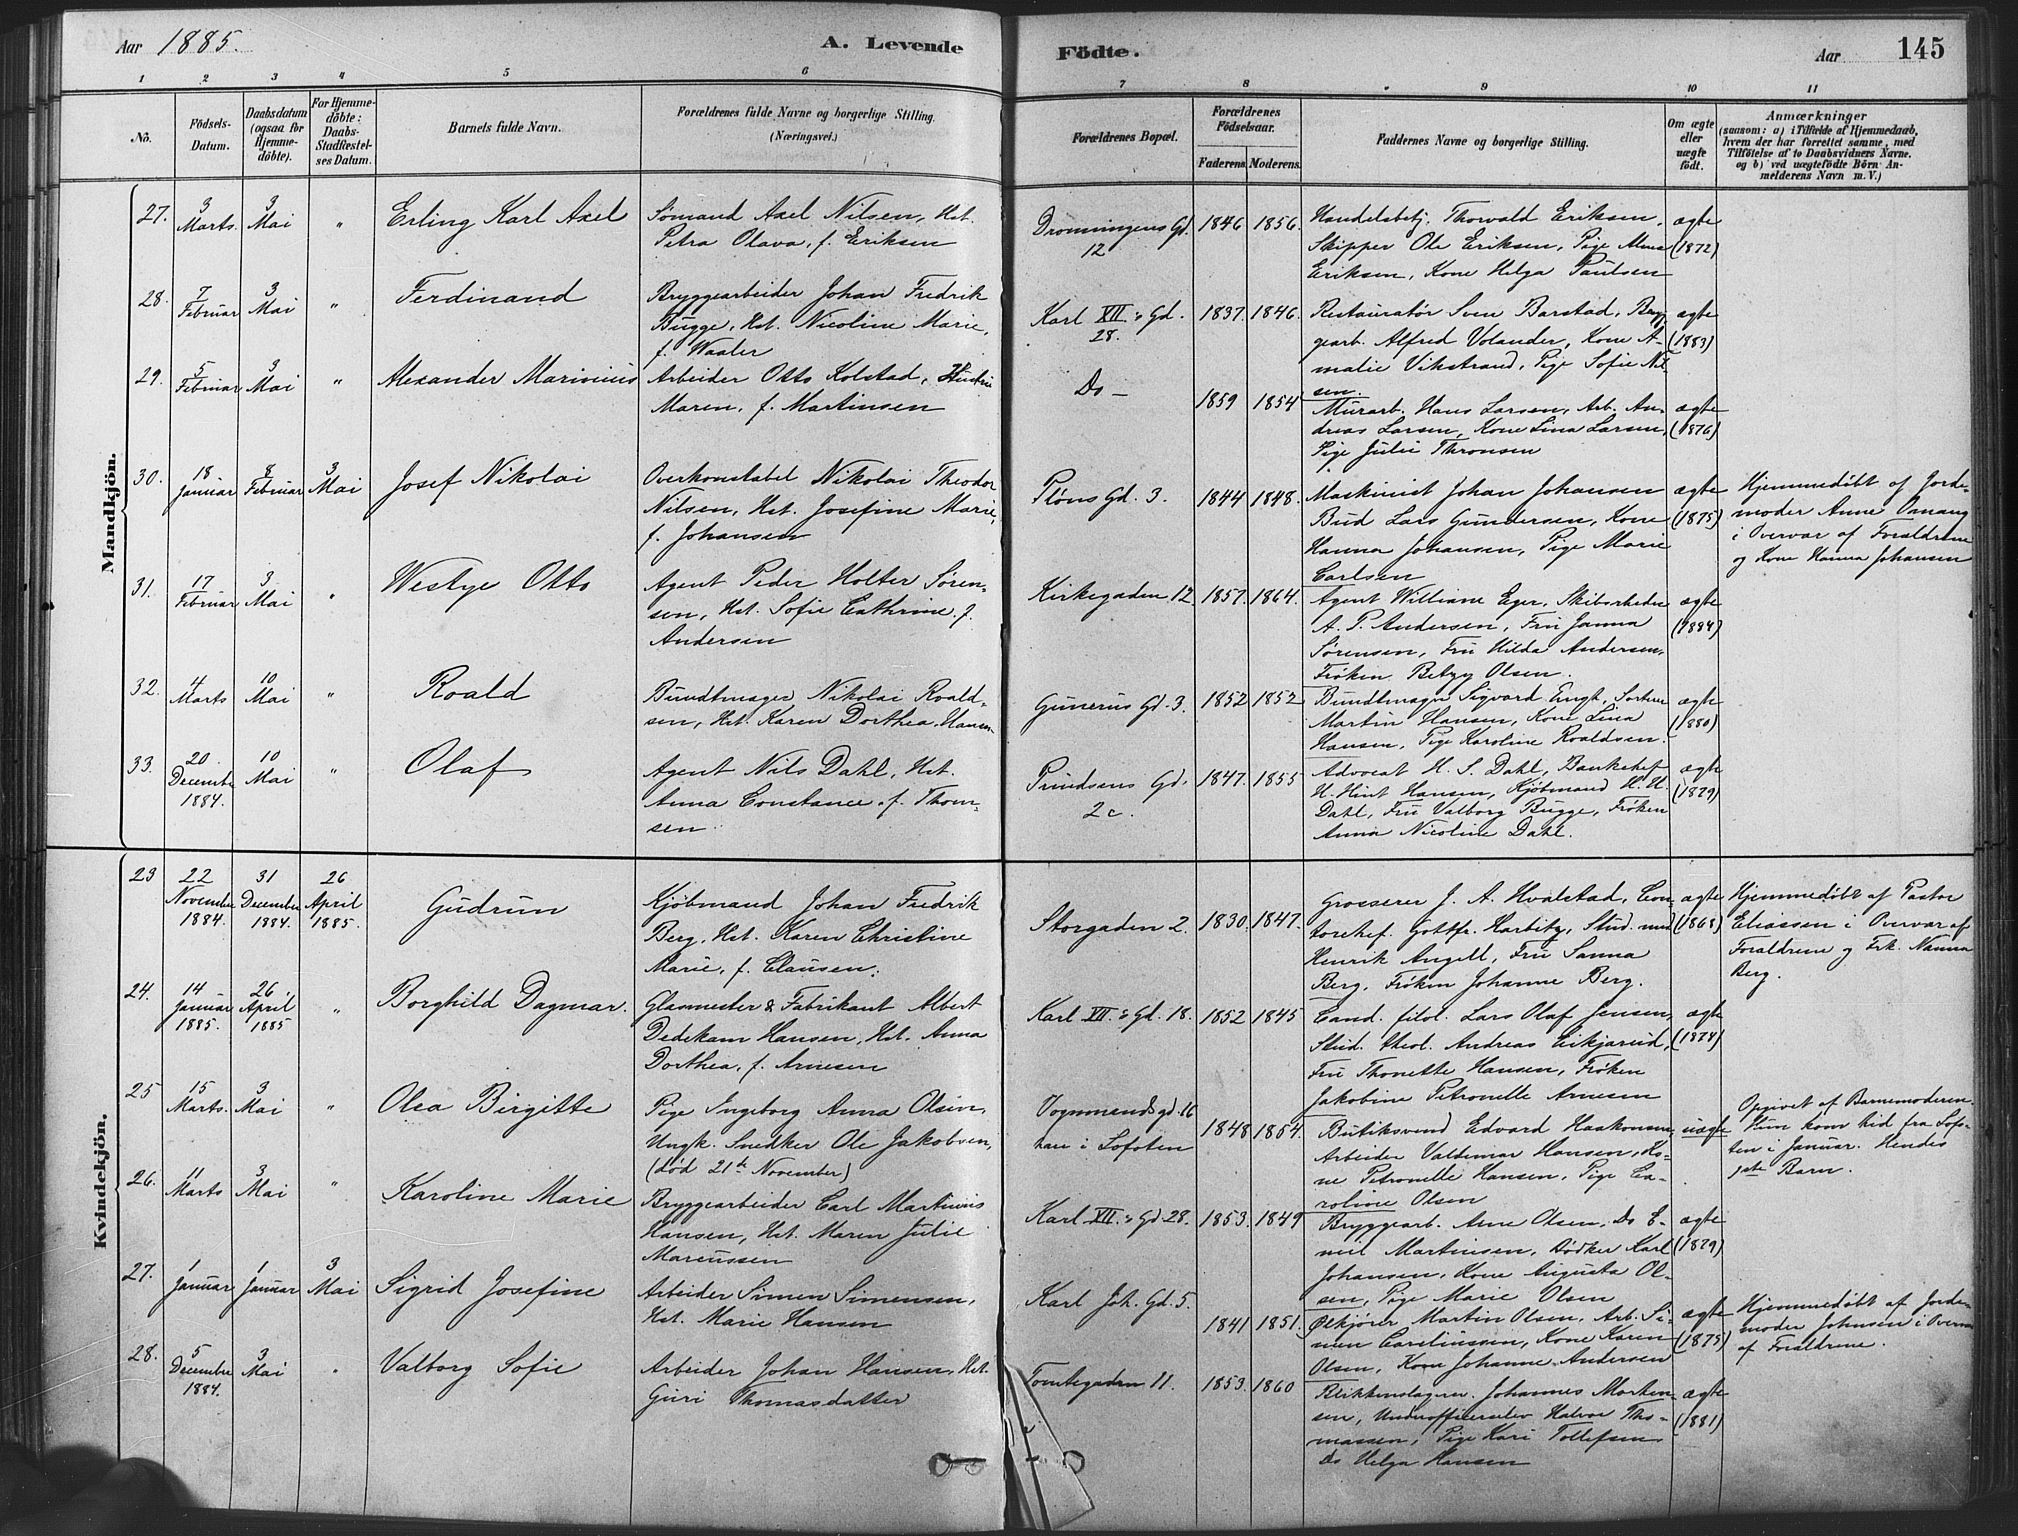 Aar 1885.
A. Levende
Födte.
Aar
145
1 2 3 4 5 6 7 8 9 10 11
No.
Födsels-
Datum.
Daabsdatum
(ogsaa for
Hjemme-
döbte).
For Hjemme-
döbte:
Daabs-
Stadfestel-
ses Datum.
Barnets fulde Navn.
Forældrenes fulde Navne og borgerlige Stilling.
(Næringsvei.)
Forældrenes Bopæl.
Forældrenes
Födselsaar.
Faderens. Moderens.
Faddernes Navne og borgerlige Stilling.
Om ægte
eller
uægte
født.
Anmærkninger
(saasom: a) i Tilfælde af Hjemmedaab,
hvem der har forrettet samme, med
Tilföielse af to Daabsvidners Navne.
og b) ved uægtefödte Börn An-
melderens Navn m. V.)
Mandkjön.
27. 3 Marts. 3 Mai " Erling Karl Axel
Sømand Axel Nilsen, Hst.
Petra Olava, f. Eriksen
Dronningens Gd. 12
1846 1856.
Handelsbetj. Thorvald Eriksen,
Skipper Ole Eriksen, Pige Alma
Eriksen, Kone Helga Paulsen
ægte (1872)
28. 7 Februar 3 Mai " Ferdinand
Bryggearbeider Johan Fredrik
Bugge, Hst. Nicoline Marie,
f. Waaler
Karl XII's Gd. 28.
1837. 1846.
Restauratør Sven Barstad, Bryg-
gearb. Alfred Volander, Kone A-
malie Vikstrand, Pige Sofie Nil-
sen
ægte (1883)
29. 5 Februar 3 Mai " Alexander Marinius
Arbeider Otto Kolstad, Hustru
Maren, f. Martinsen
Do —
1859 1854
Murarb. Hans Larsen, Arb. An-
dreas Larsen, Kone Lina Larsen,
Pige Julie Thronsen
ægte (1876)
30. 18 Januar 8 Februar 3 Mai Josef Nikolai
Overkonstabel Nikolai Theodor
Nilsen, Hst. Josefine Marie,
f. Johansen
Pløns Gd. 3.
1844 1848.
Maskinist Johan Johansen
Bud Lars Gundersen, Kone
Hanna Johansen, Pige Marie
Carlsen
ægte (1875)
Hjemmedøbt af Jorde-
moder Anne
i Overvær af Forældrene
og Kone Hanna Johansen
31. 17 Februar 3 Mai " Westye Otto
Agent Peder Holter Søren-
sen, Hst. Sofie Cathrine f.
Andersen
Kirkegaden 12.
1857. 1864.
Agent William Eger, Skibsrheder
A. P. Andersen, Fru Janna
Sørensen, Fru Hilda Andersen,
Frøken Betzy Olsen.
ægte (1884)
32. 4 Marts 10 Mai " Roald
Bundtmager Nikolai Roald-
sen, Hst. Karen Dorthea Hansen
Gunerus Gd. 3.
1852 1852
Bundtmager Sigvard Engh,
Martin Hansen, Kone Lina
Hansen, Pige Karoline Roaldsen.
ægte (1880)
33. 20 Decembr 1884. 10 Mai " Olaf
Agent Nils Dahl, Hst.
Anna Constance f. Thom-
sen
Pundsens Gd. 2c.
1847. 1855
Advocat H. S. Dahl, Bankchef
H. Hansen, Kjøbmand H. H.
Dahl, Fru Valborg Bugge, Frøken
Anna Nicoline Dahl.
ægte (1879)
Kvindekjön.
23 22 November 1884. 31 December 1884. 26 April 1885. Gudrun
Kjøbmand Johan Fredrik
Berg, Hst. Karen Christine
Marie, f. Clausen.
Storgaden 2.
1830. 1847.
Grosserer J. A. Hvalstad, Con-
torchef Gottfr. Harbitz, Stud. med
Henrik Angell, Fru Sanna
Berg, Frøken Johanne Berg.
ægte (1868)
Hjemmedøbt af Pastor
Eliassen i Overvær af
Forældrene og Frk. Nanna
Berg.
24. 14 Januar 1885. 26 April 1885 " Borghild Dagmar.
Glasmester & Fabrikant Albert
Dedekam Hansen, Hst. Anna
Dorthea, f. Arnesen
Karl XII's Gd. 18.
1852 1845
Cand. filol. Lars Olaf Jensen,
Stud. theol. Andreas Eikjarud,
Fru Thonette Hansen, Frøken
Jakobine Petronelle Arnesen
ægte (1878)
25 15 Marts. 3 Mai " Olea Birgitte
Pige Ingeborg Anna Olsen,
Ungk. Snedker Ole Jakobsen,
(død 21de November)
Vognmandsgd. 16
han i Lofoten
1848 1854.
Butiksvend Edvard Haakonsen,
Arbeider Valdemar Hansen, Ko-
ne Petronelle Hansen, Pige Ca-
roline Olsen
uægte
Opgivet af Barnemoderen.
Hun kom hid fra Lofo-
ten i Januar. Hendes
Barn.
26. 11 Marts 3 Mai " Karoline Marie
Bryggearbeider Carl Martinius
Hansen, Hst. Maren Julie
Marcussen
Karl XII's Gd 28.
1853. 1849
Bryggearb. Arne Olsen, Do E-
mil Martinsen, Bødker Karl
Johansen, Kone Augusta Ol-
sen, Pige Marie Olsen
ægte (1879)
27. 1 Januar 1 Januar 3 Mai Sigrid Josefine
Arbeider Simen Simensen,
Hst. Marie Hansen
Karl Joh. Gd. 5.
1841 1851.
Ølkjører Martin Olsen, Arb. Si-
men Carelinsson, Kone Karen
Olsen, Kone Johanne Andersen
ægte (1875)
Hjemmedøbt af Jorde-
moder Johnsen i Overvær
af Forældrene.
28. 5 Decembre 1884. 3 Mai " Valborg Sofie
Arbeider Johan Hansen, Hst.
Guri Thomasdatter
Tomtegaden 11.
1853. 1860
Blikkenslager. Johannes Morten-
sen, Underofficerselev Halvor Tho-
massen, Pige Kari Tollefsen
Do Helga Hansen
ægte (1881)